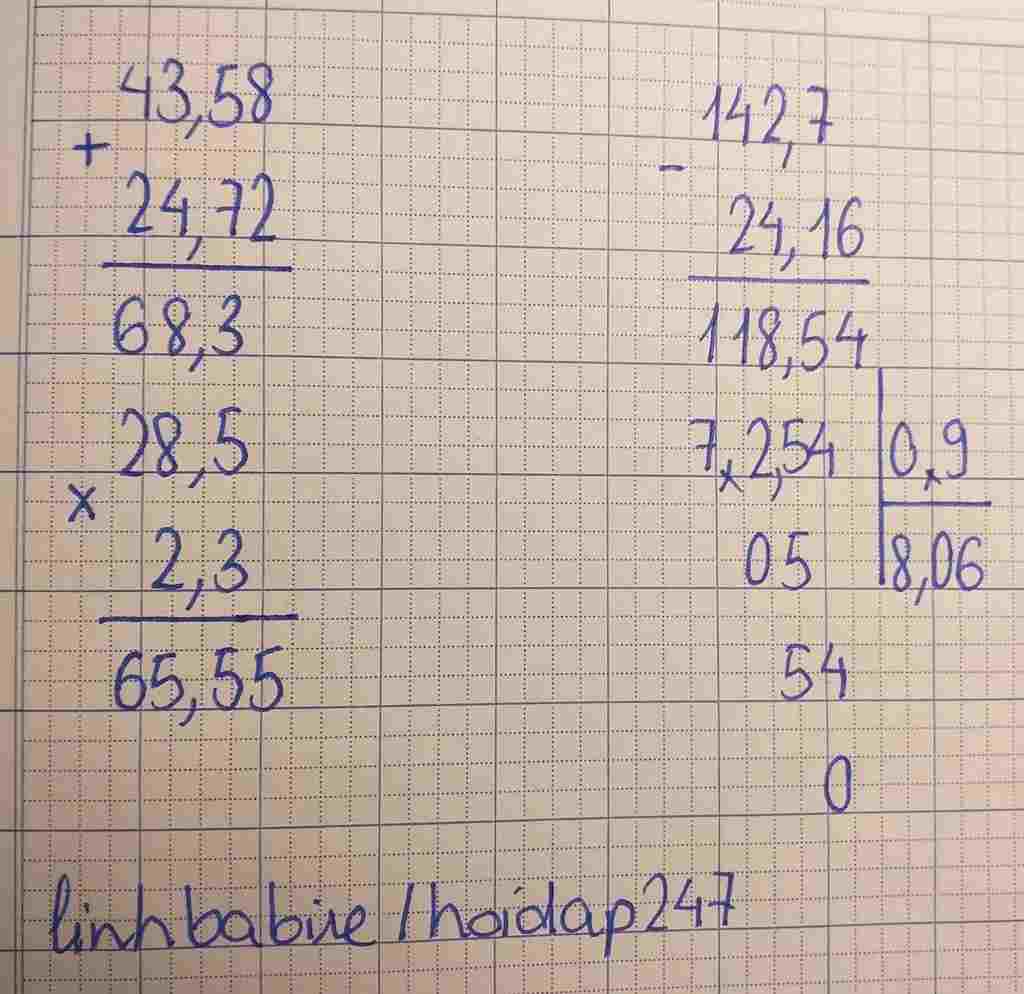 43,58
+
24,72
68,3
28,5
x
2,3
65,55
142,7
-
24,16
118,54
7,2,54 0,9
05 8,06
54
0
linhbabiie/hoidap247